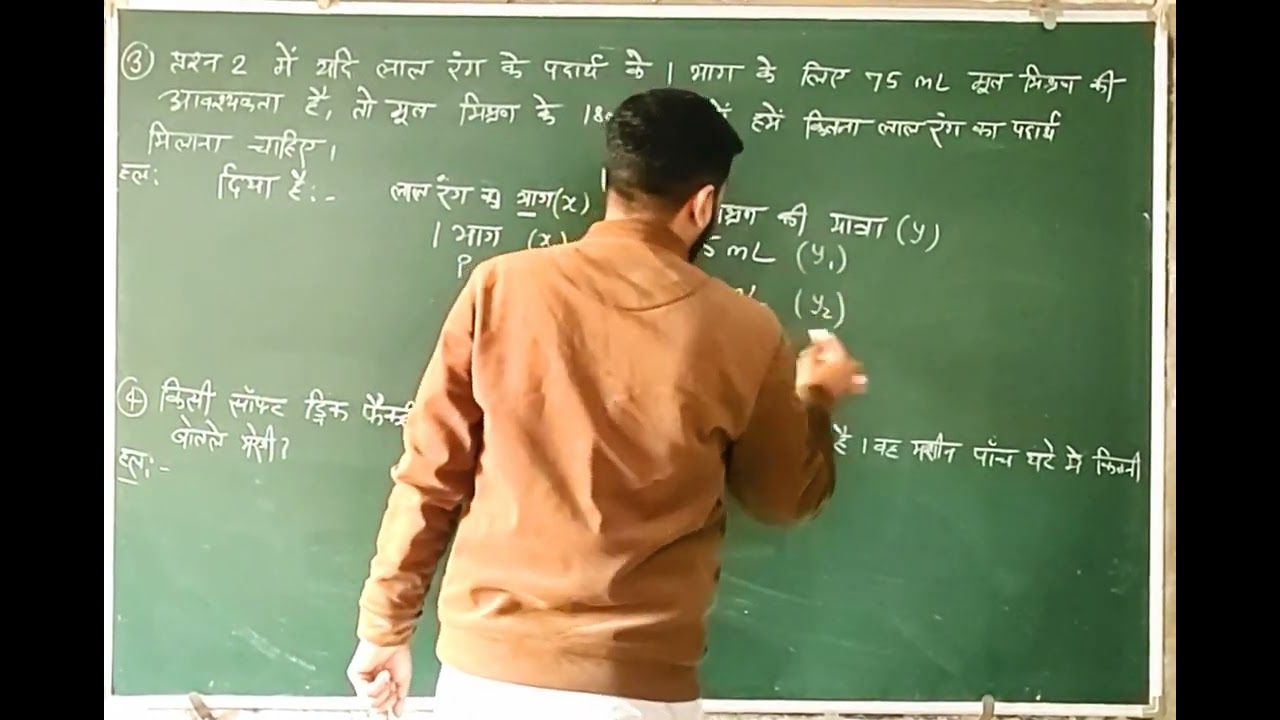 ③ प्रश्न 2 में यदि लाल रंग के पदार्थ के 1 भाग के लिए 75 mL मूल मिश्रण की
आवश्यकता है, तो मूल मिश्रण के में हमें कितना लाल रंग का पदार्थ
मिलाना चाहिए।
हल: दिया है:- लाल रंग का भाग(x) की मात्रा (y)
1 भाग (x mL (y₁)
(y₂)
④ किसी सॉफ्ट ड्रिंक है। वह मशीन पाँच घंटे में कितनी
बोतले भरेगी?
हल:-